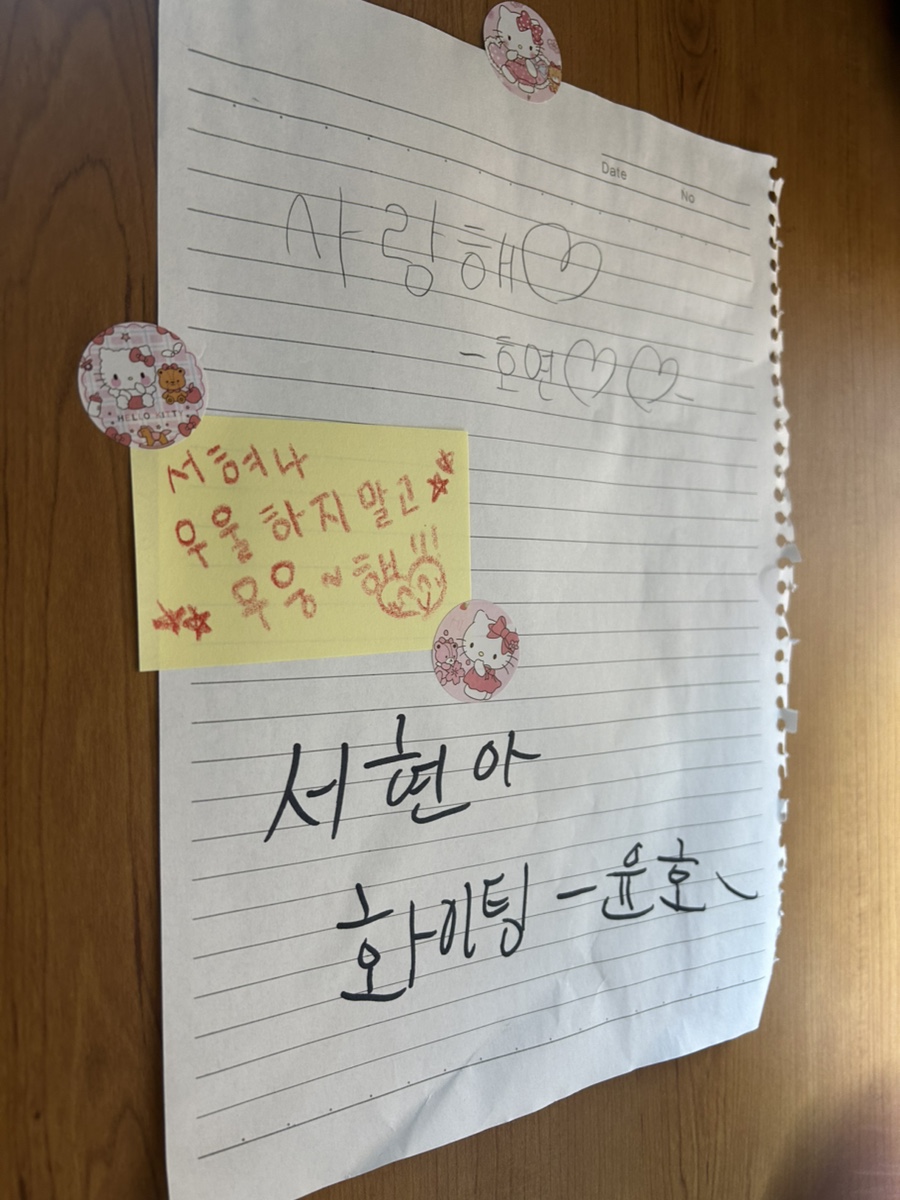 Date
No
사랑해♡
-호연♡♡-
HELLO KITTY
서혀나
우울하지말고
우웅~해!!!
서현아
화이팅 -윤호-